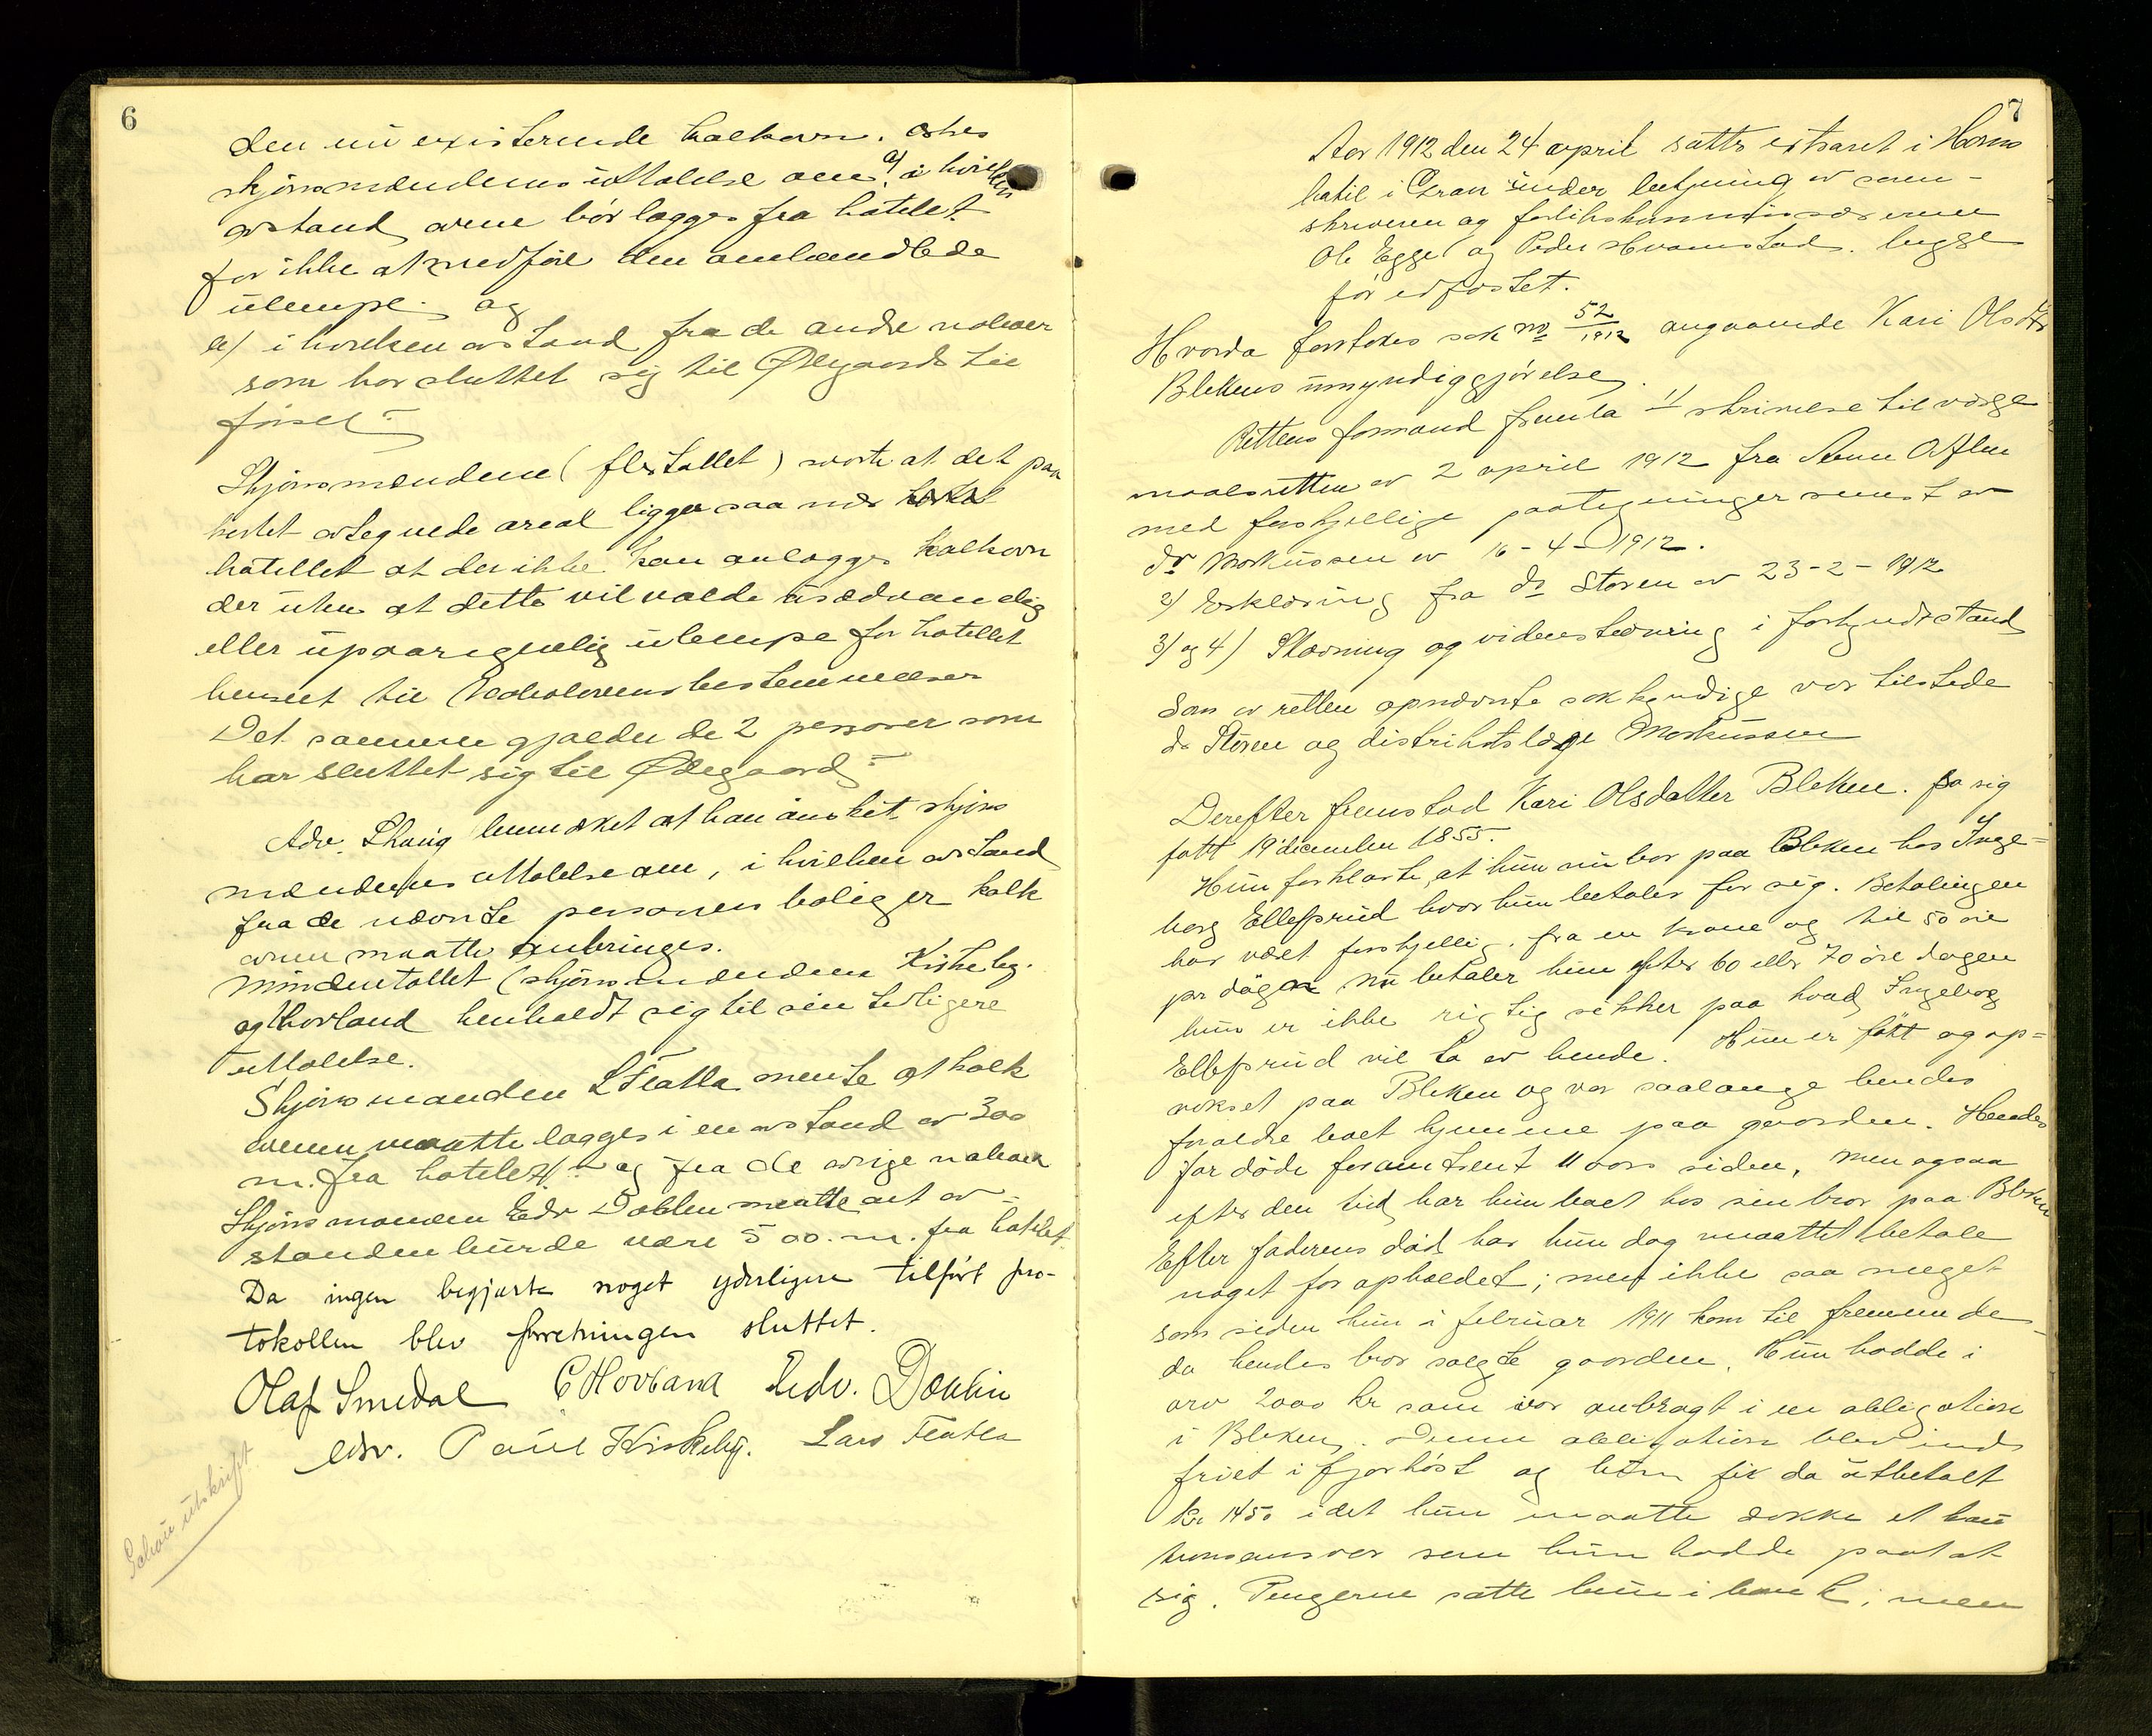 6
den nu existerende kalkovn. Ønskes
skjønsmændenes uttalelse om a) i hvilken
avstand ovnen bør lægges fra hotellet
for ikke at medføre den omhandlede
ulempe og
b) i hvilken avstand fra de andre naboer
som har sluttet sig til Ødegaards til
førsel.
Skjønsmændene (flertallet) svarte at det paa
kartet avtegnede areal ligger saa nær
hotellet at der ikke kan anlægges kalkovn
der uten at dette vil volde usædvanelig
eller upaaregnelig ulempe for hotellet
henseet til Nabolovens bestemmelser
Det samme gjælder de 2 personer som
har sluttet sig til Ødegaard.
Adv. bemerket at han ønsket skjøns
mændenes uttalelse om, i hvilken avstand
fra de nævnte personers boliger kalk
ovnen maatte anbringes.
Mindretallet (skjønsmændene Kiskeby
og Hovland henholdt sig til sin tidligere
uttalelse.
Skjønsmanden L Flatla mente at kalk
ovnen maatte lægges i en avstand av 300
m. fra hotellet og fra de øvrige naboer
Skjønsmanden Edv Dahlen mente at av-
standen burde være 500 m. fra hotellet.
Da ingen begjærte noget yderligere tilført pro-
tokollen blev forretningen sluttet.
Olaf Smedal C Hovland Edv. Dahlen
edsv. Paul Kiskeby. Lars Flatla
utskrift
7
Aar 1912 den 24 april sattes extraret i Horns
hotel i Gran under ledning av soren-
skriveren og forlikskommissærerne
Ole Egge og Peder Hvamstad. begge
før edfæstet.
Hvorda foretokes sak No 52/1912 angaaende Kari Olsdtr
Blekens umyndiggjørelse.
Rettens formand fremla 1) skrivelse til verge
maalsretten av 2 april 1912 fra
med forskjellige paategninger senest av
dr Markussen av 16-4-1912.
2) Erklæring fra dr Støren av 23-2-1912
3) og 4) Stævning og vidnestævning i forkyndt stand
Som av retten opnævnte sakkyndige var tilstede
dr Støren og distriktslæge Markussen
Derefter fremstod Kari Olsdatter Bleken. Sa sig
født 19 december 1855.
Hun forklarte, at hun nu bor paa Bleken hos Inge=
borg Ellefsrud hvor hun betaler for sig. Betalingen
har været forskjellig. fra en krone og til 50 øre
pr døgn. Nu betaler hun efter 60 eller 70 øre dagen
hun er ikke rigtig sikker paa hvad Ingeborg
Ellefsrud vil ta av hende. Hun er født og op=
vokset paa Bleken og var saalænge hendes
forældre levet hjemme paa gaarden. Hendes
far døde for omtrent 11 aars siden, men ogsaa
efter den tid har hun boet hos sin bror paa Bleken
Efter faderens død har hun dog maattet betale
noget for opholdet; men ikke saa meget
som siden hun i februar 1911 kom til fremmede
da hendes bror solgte gaarden. Hun hadde i
arv 2000 kr som var anbragt i en obligation
i Bleken. Denne obligation blev ind
friet i fjor høst og hun fik da utbetalt
kr 1450 idet hun maatte dække et kau
tionsansvar som hun hadde paatat
sig. Pengene satte hun i bank, men